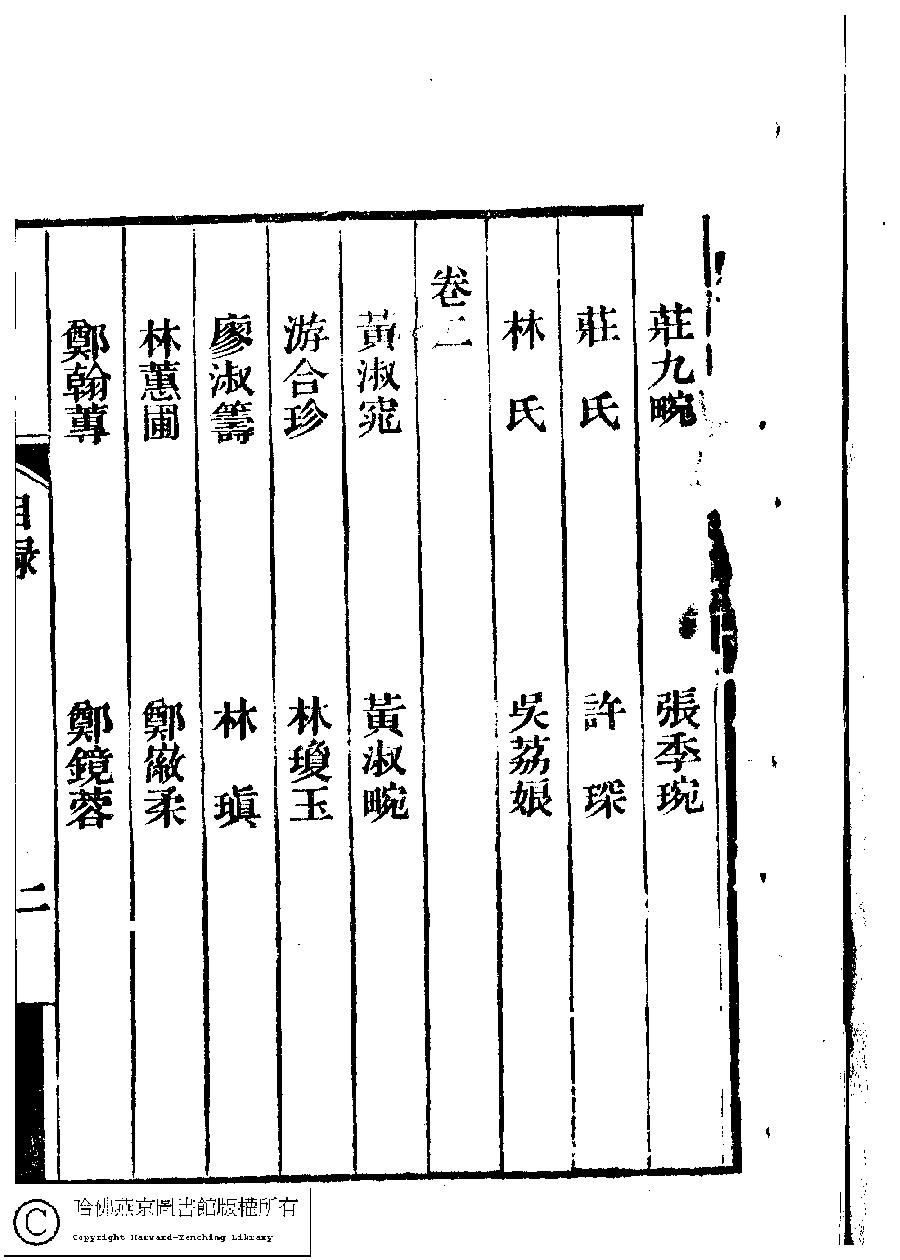 莊九畹　張季琬
莊氏　許琛
林氏　吳荔娘
卷二
黃淑窕　黃淑畹
游合珍　林瓊玉
廖淑籌　林瑱
林蕙圃　鄭徽柔
鄭翰蓴　鄭鏡蓉
目錄　二
哈佛燕京圖書館版權所有
Copyright Harvard-Yenching Library